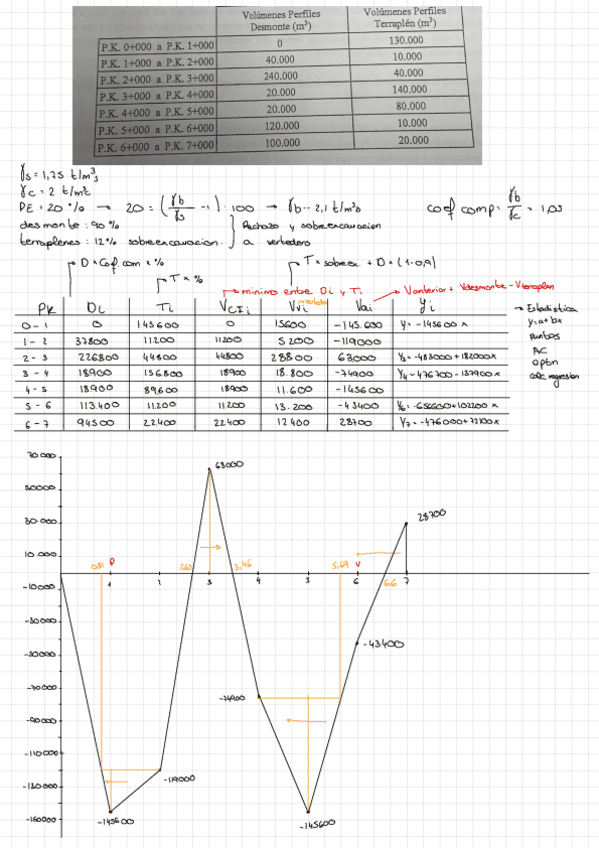 Volúmenes Perfiles Desmonte (m³) Volúmenes Perfiles Terraplén (m³)
P.K. 0+000 a P.K. 1+000 0 130.000
P.K. 1+000 a P.K. 2+000 40.000 10.000
P.K. 2+000 a P.K. 3+000 240.000 40.000
P.K. 3+000 a P.K. 4+000 20.000 140.000
P.K. 4+000 a P.K. 5+000 20.000 80.000
P.K. 5+000 a P.K. 6+000 120.000 10.000
P.K. 6+000 a P.K. 7+000 100.000 20.000
γs = 1,75 t/m³s
γc = 2 t/m³t
PE = 20 % → 20 = (γb/γs - 1) · 100 → γb = 2,1 t/m³b coef comp = γb/γc = 1,05
desmonte: 90 % } Rechazo y sobreexcavacion
terraplenes: 12% sobreexcavacion. } a vertedero
→ D × Cof. com × % → T × sobreex. + D × (1-0,9)
→ T × % → minimo entre Di y Ti → Vanterior + Vdesmonte - Vterraplen
PK Di Ti VCIi Vvi vertedero Vai yi
0-1 0 145600 0 15600 -145.600 y = -145600x
1-2 37800 11200 11200 5200 -119000
2-3 226800 44800 44800 28800 63000 y3 = -483000+182000x
3-4 18900 156.800 18900 18.800 -74900 y4 = 476700-137900x
4-5 18900 89,600 18900 11.600 -145600
5-6 113.400 11.200 11200 13.200 -43400 y6 = -656600+102200x
6-7 94500 22.400 22400 12400 28700 y7 = -476000+72100x
→ Estadistica
y = a+bx
puntos
AC
optn
calc regresion
70.000
50000
30.000
10.000
-10000
-30.000
-50.000
-70.000
-90.000
-110.000
-130.000
-160.000
63000
28700
0,81 P 2,65 3,46 5,69 V 6,6
1 1 3 4 5 6 7
-43400
-74900
-119000
-145600
-145600